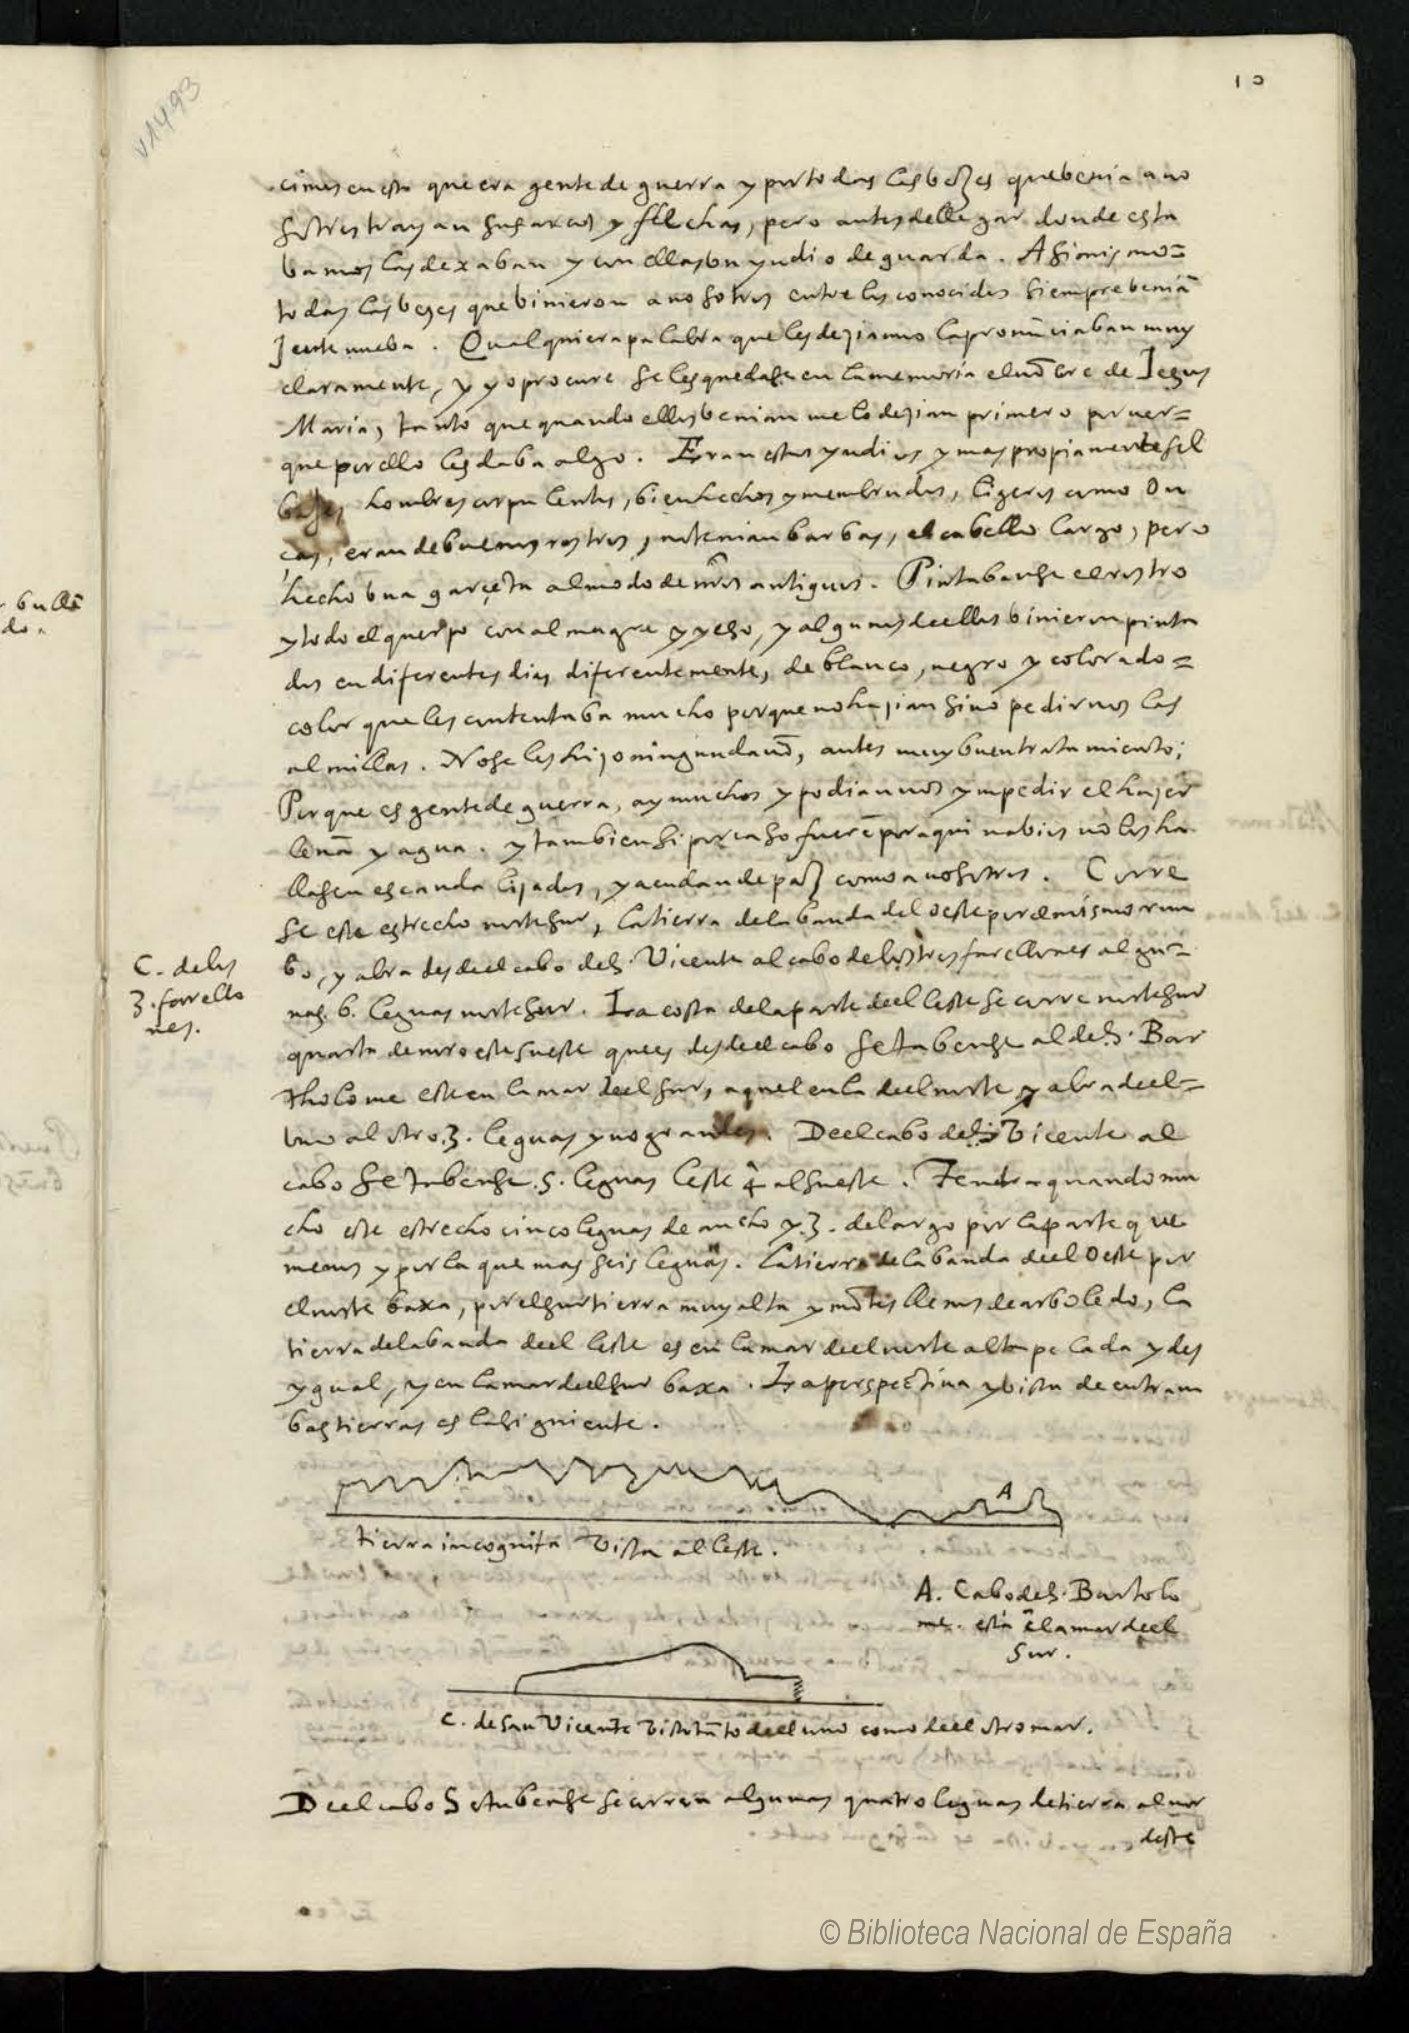 10
V1493
cimos en esto que era gente de guerra y por todas las bezes que benia a no
sotros trayan sus arcos y flechas, pero antes de llegar donde esta
bamos las dexaban y con ellas un yndio de guarda. Asimismo=
todas las bezes que binieron a nosotros entre los conocidos siempre beniā
Jente nueba. Qualquiera palabra que les deziamos la pronūciaban muy
claramente, y yo procure se les quedase en la memoria el nōbre de Jesus
Maria, tanto que quando ellos benian me lo dezian primero por ver=
que por ello les daba algo. Eran estos yndios y mas propiamente sal
bajes hombres corpulentos, bien hechos y membrudos, ligeros como On
ças, eran de buenos rostros, no tenian barbas, el cabello largo, pero
hecho una garçeta al modo de nr̄os antiguos. Pintabanse el rostro
y todo el querpo con almagre y yeso, y algunos de ellos binieron pinta
dos en diferentes dias diferentemente, de blanco, negro y colorado=
color que les contentaba mucho porque no hazian sino pedirnos las
almillas. No se les hizo ningun dañō, antes muy buen tratamiento;
Porque es gente de guerra, ay muchos y podian nos ympedir el hazer
lenā y agua. y tambien si por caso fuerē por aqui nabios no los ha
llasen escandalizados, y acudan de paz como a nosotros. Corre
se este estrecho norte sur, la tierra de la banda del Oeste por el mismo rum
bo, y abra desde el cabo de S. Vicente al cabo de los tres farellones algu=
nas. 6. leguas norte sur. La costa de la parte deel leste se corre norte sur
quarta de noroeste sueste que es desde el cabo Setabense al de S. Bar
tholome este en la mar deel sur, aquel en la deel norte y abra deel=
uno al otro. 3. leguas y no grandes. Deel cabo de S. Vicente al
cabo Setubense. 5. leguas leste 4ª al sueste. Tendra quando mu
cho este estrecho cinco leguas de ancho y. 3. de largo por la parte que
menos y por la que mas seis leguas. La tierra de la banda deel Oeste por
el norte baxa, por el sur tierra muy alta y mōtes llenos de arboledo, la
tierra de la banda deel leste es en la mar deel norte alta pelada y des
ygual, y en la mar deel sur baxa. La perspectiua y bista de entram
bas tierras es la siguiente.
C. de los
3. farrello
nes.
A
tierra incognita Vista al leste.
A. Cabo de S. Bartolo
me. está ē la mar deel
Sur.
C. de San Vicente Visto tāto deel uno como deel otro mar.
Deel cabo Setubense se corren algunas quatro leguas de tierra al nor
deste
© Biblioteca Nacional de España